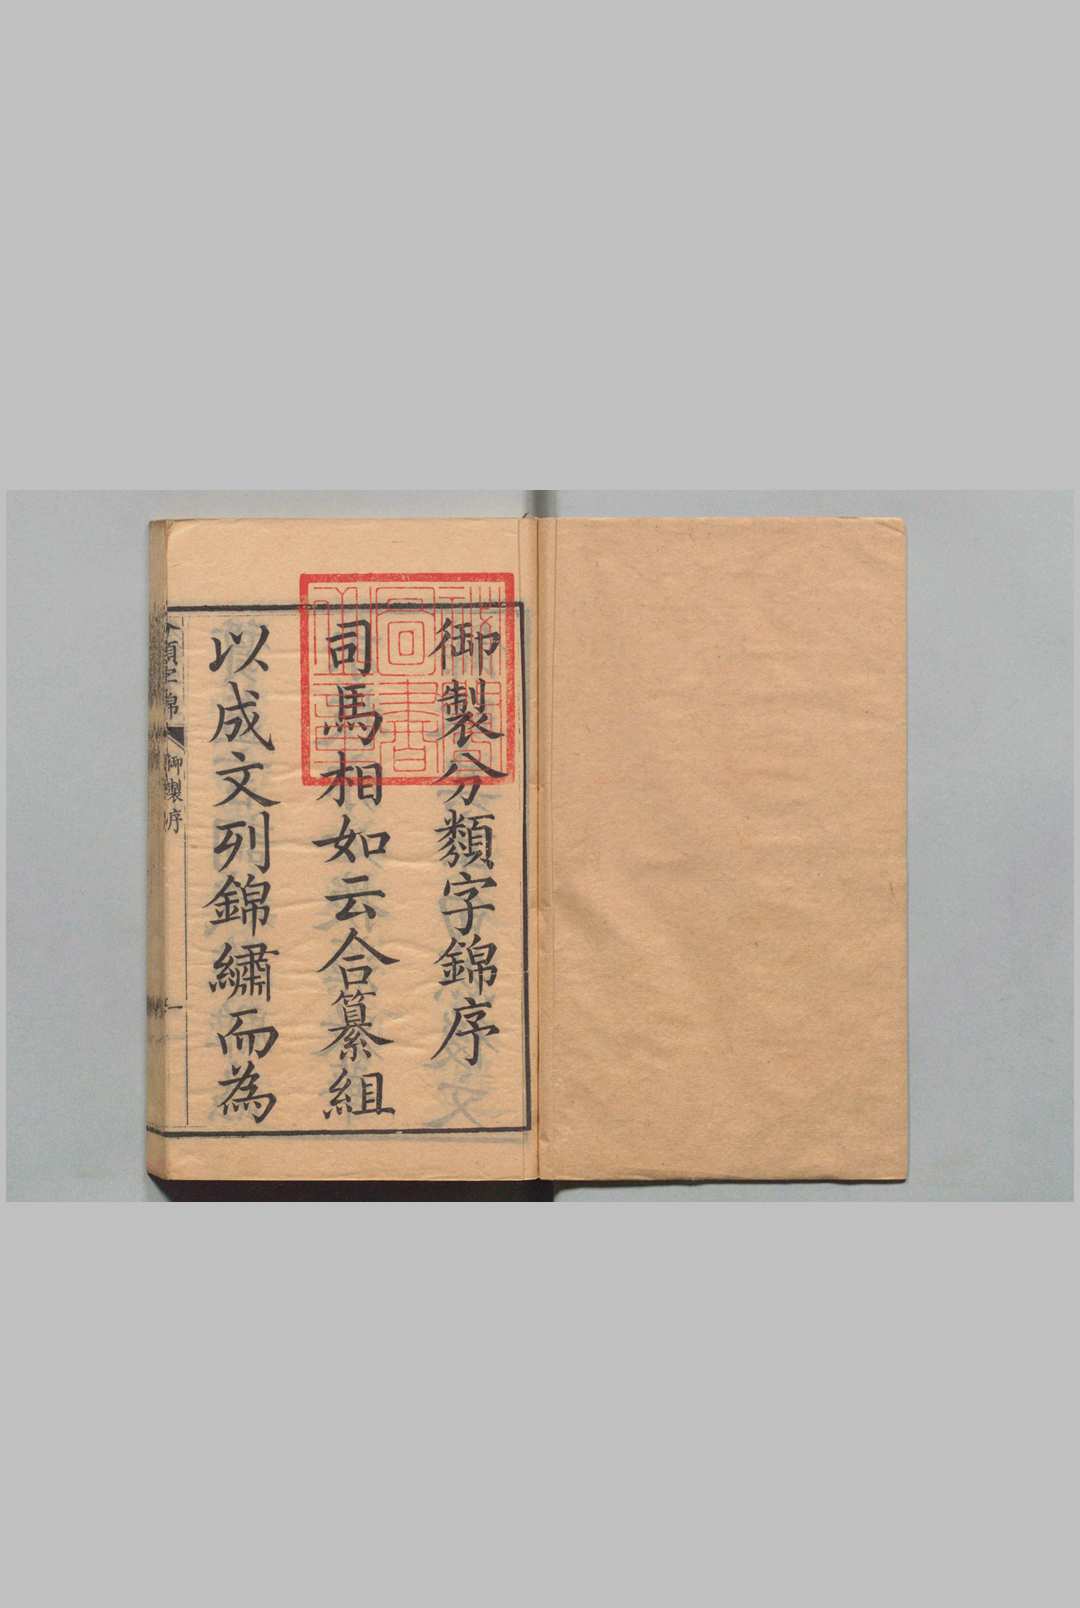 御製分類字錦序
司馬相如云合纂組
以成文列錦繡而為
類字錦
御製序
一